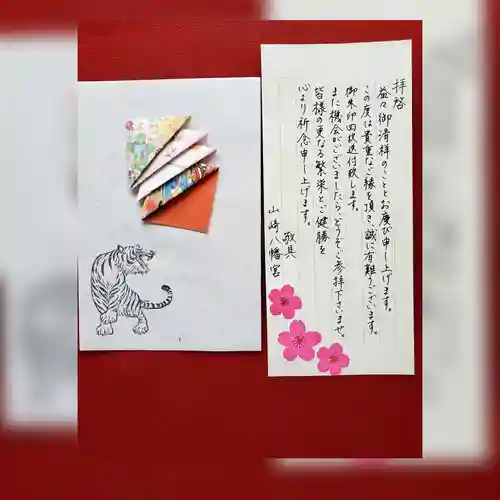 拝啓
益々御清祥のこととお慶び申し上げます。
この度は貴重なご縁を頂き、誠に有難うございます。
御朱印四枚送付致します。
また機会がございましたら、どうぞご参拝下さいませ。
皆様の更なる繁栄とご健勝を
心より祈念申し上げます。
敬具
山崎八幡宮